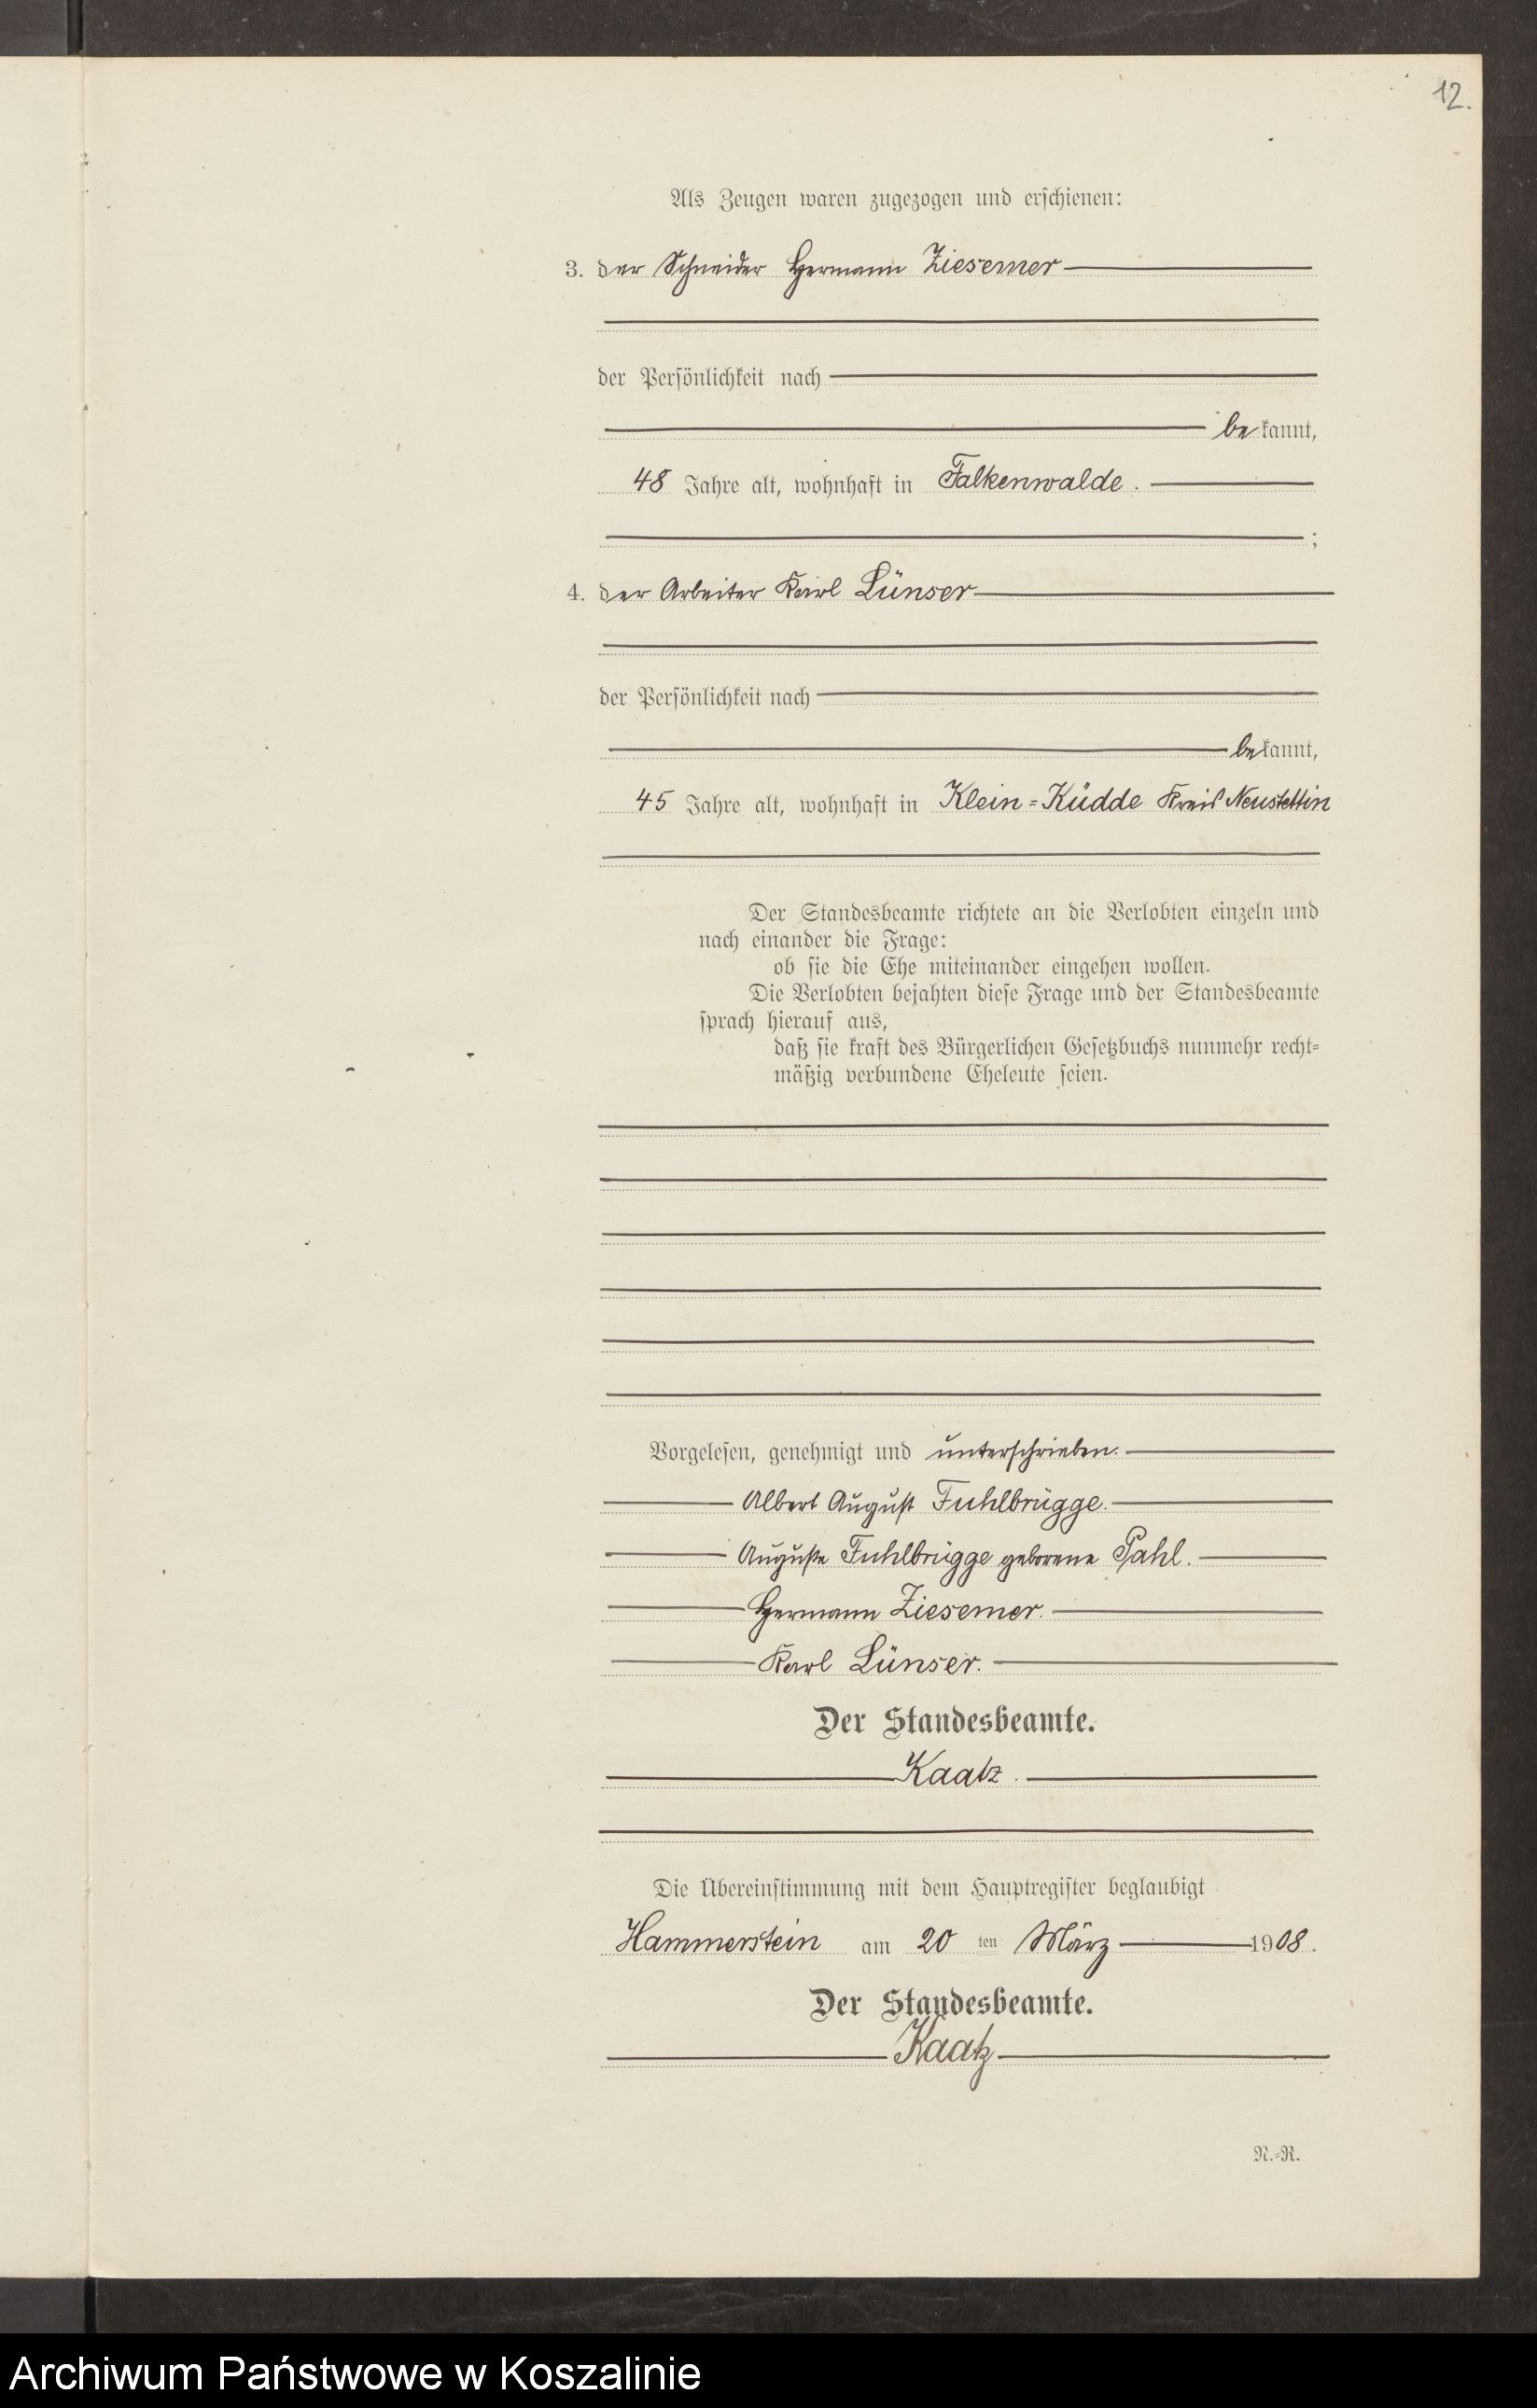 12.
Als Zeugen waren zugezogen und erschienen:
3. der Schneider Hermann Ziesemer
der Persönlichkeit nach
bekannt,
48 Jahre alt, wohnhaft in Falkenwalde.
;
4. der Arbeiter Karl Lünser
der Persönlichkeit nach
bekannt,
45 Jahre alt, wohnhaft in Klein=Küdde Kreis Neustettin
Der Standesbeamte richtete an die Verlobten einzeln und
nach einander die Frage:
ob sie die Ehe miteinander eingehen wollen.
Die Verlobten bejahten diese Frage und der Standesbeamte
sprach hierauf aus,
daß sie kraft des Bürgerlichen Gesetzbuchs nunmehr recht=
mäßig verbundene Eheleute seien.
Vorgelesen, genehmigt und unterschrieben.
Albert August Fuhlbrügge.
Auguste Fuhlbrügge geborene Pahl.
Hermann Ziesemer.
Karl Lünser.
Der Standesbeamte.
Kaatz.
Die Übereinstimmung mit dem Hauptregister beglaubigt
Hammerstein am 20 ten März 1908.
Der Standesbeamte.
Kaatz
N.=R.
Archiwum Państwowe w Koszalinie